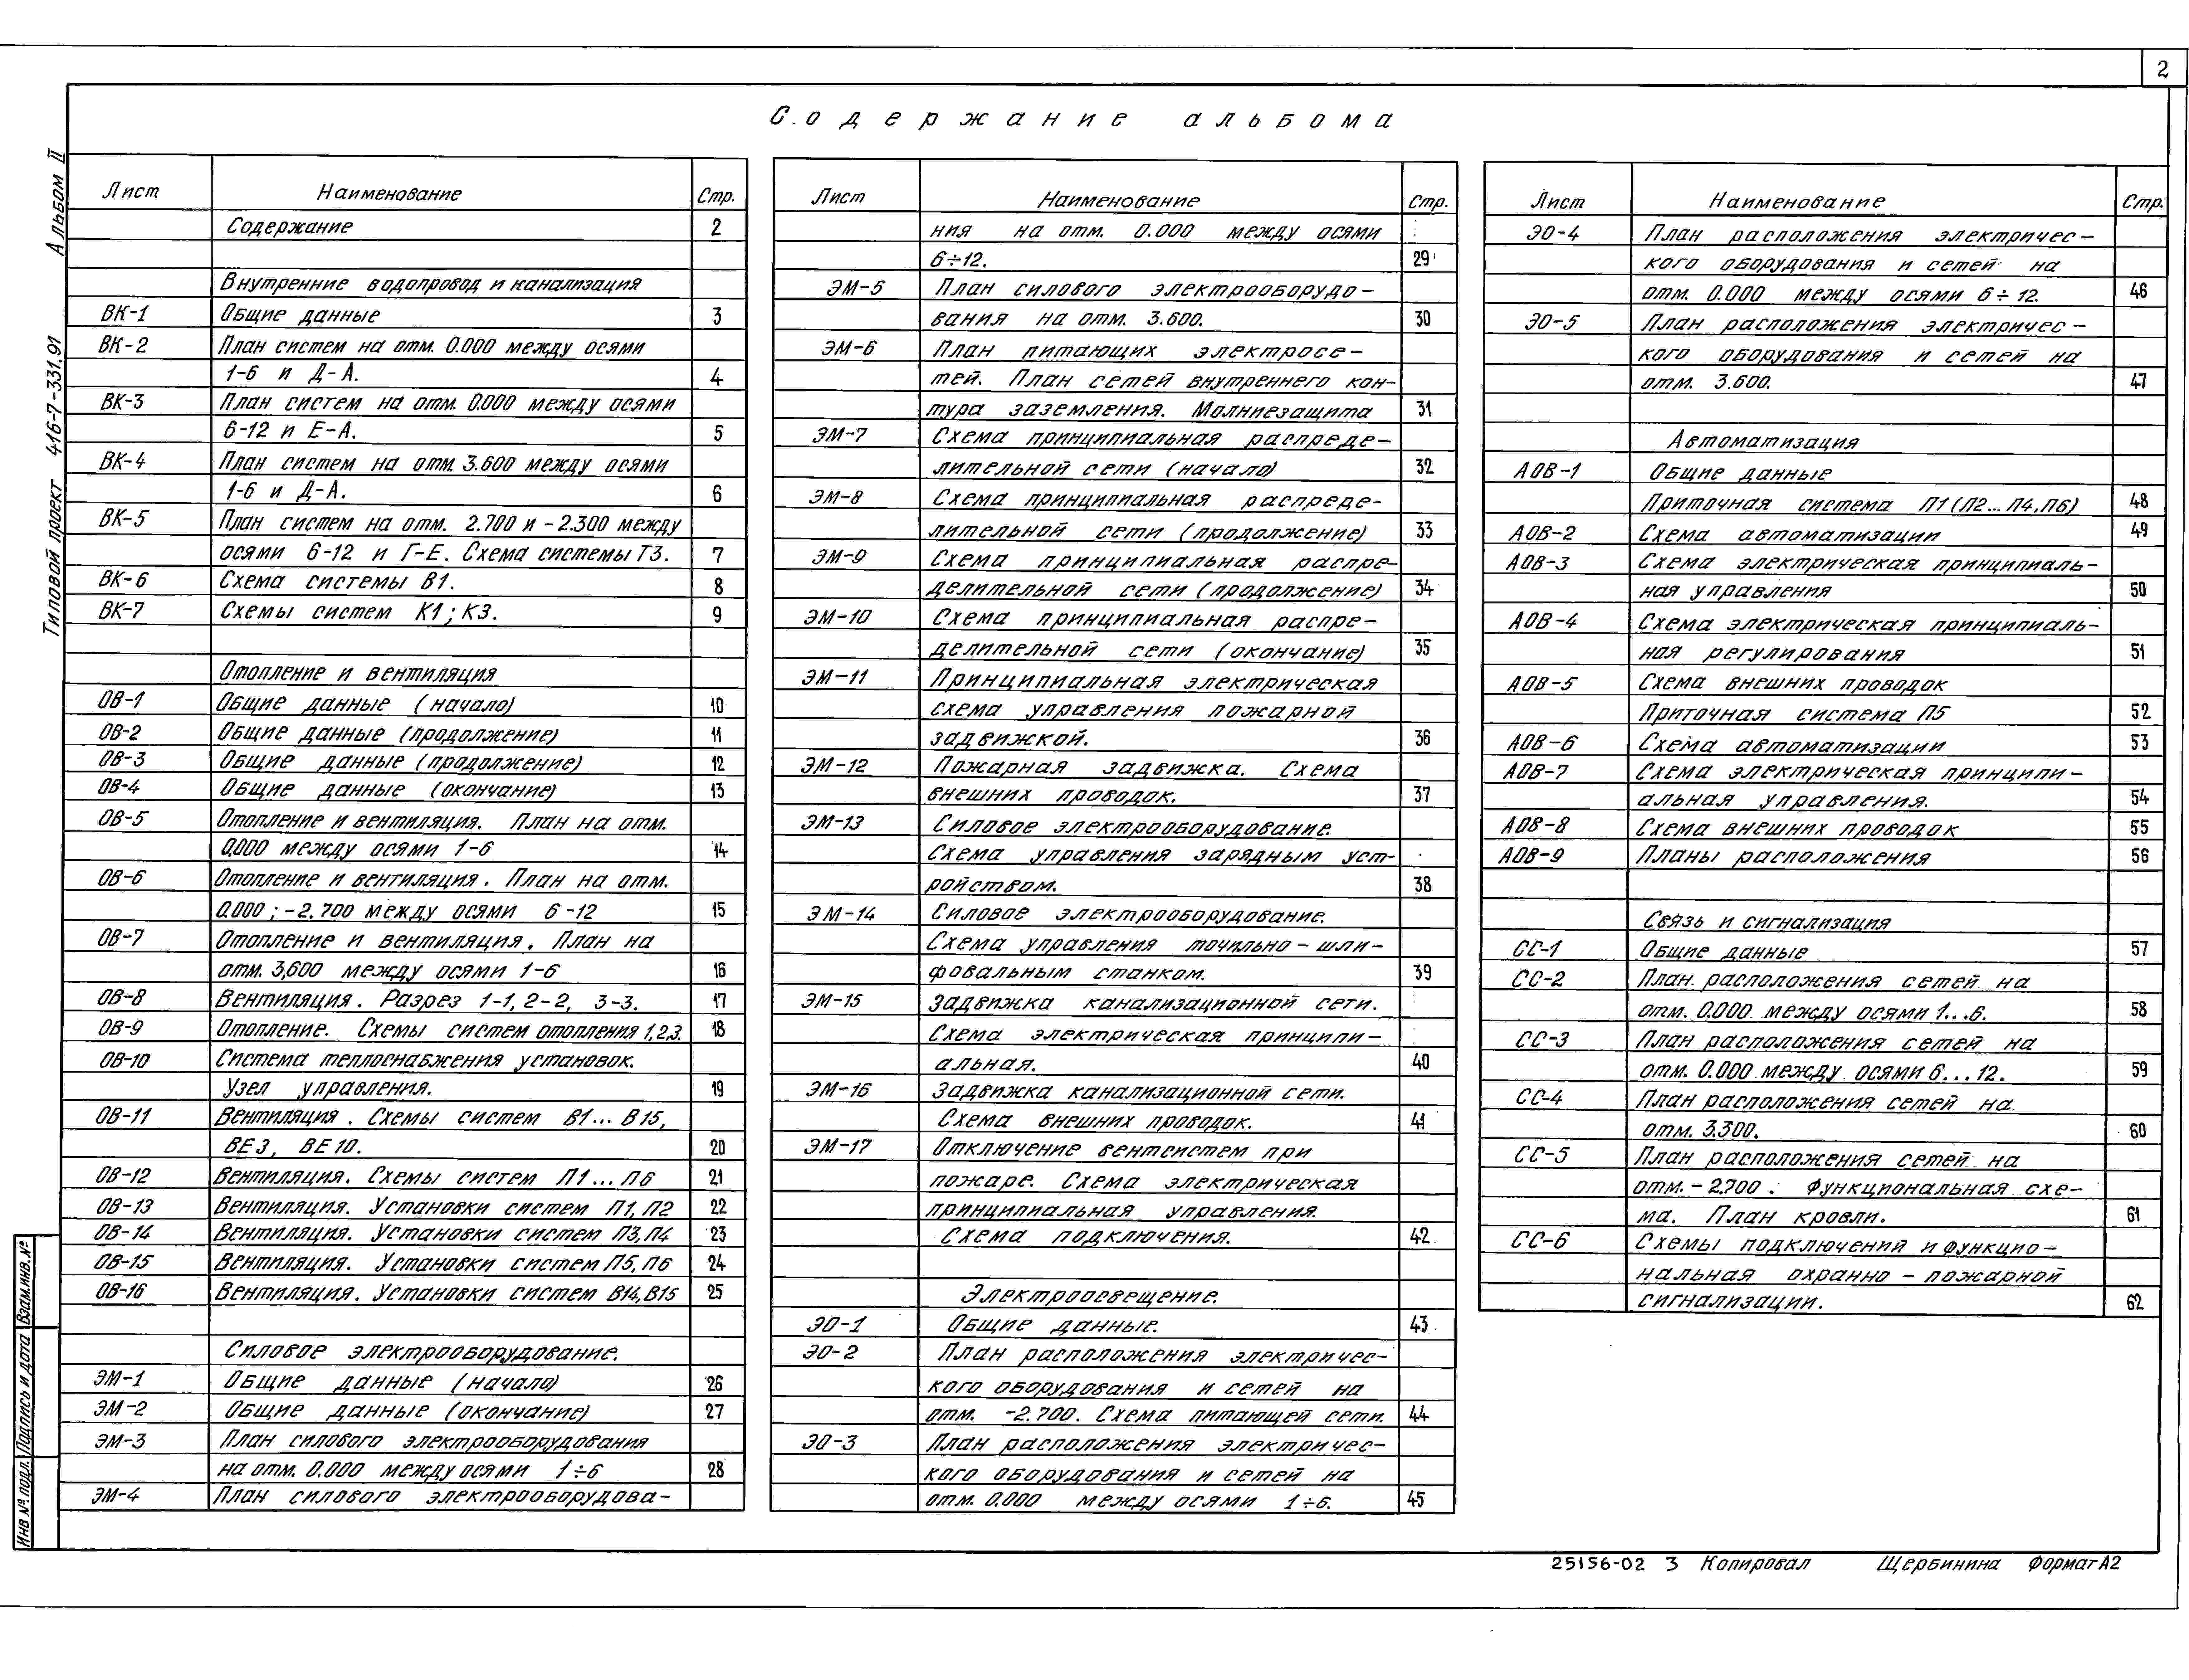 2
Содержание альбома
Альбом II
Типовой проект 416-7-331.91
Взам.инв.№
Подпись и дата
Инв № подл.
Лист Наименование Стр.
Содержание 2
Внутренние водопровод и канализация
ВК-1 Общие данные 3
ВК-2 План систем на отм. 0.000 между осями
1-6 и Д-А. 4
ВК-3 План систем на отм. 0.000 между осями
6-12 и Е-А. 5
ВК-4 План систем на отм. 3.600 между осями
1-6 и Д-А. 6
ВК-5 План систем на отм. 2.700 и -2.300 между
осями 6-12 и Г-Е. Схема системы Т3. 7
ВК-6 Схема системы В1. 8
ВК-7 Схемы систем К1; К3. 9
Отопление и вентиляция
ОВ-1 Общие данные (начало) 10
ОВ-2 Общие данные (продолжение) 11
ОВ-3 Общие данные (продолжение) 12
ОВ-4 Общие данные (окончание) 13
ОВ-5 Отопление и вентиляция. План на отм.
0.000 между осями 1-6 14
ОВ-6 Отопление и вентиляция. План на отм.
0.000; -2.700 между осями 6-12 15
ОВ-7 Отопление и вентиляция. План на
отм. 3,600 между осями 1-6 16
ОВ-8 Вентиляция. Разрез 1-1, 2-2, 3-3. 17
ОВ-9 Отопление. Схемы систем отопления 1,2,3. 18
ОВ-10 Система теплоснабжения установок.
Узел управления. 19
ОВ-11 Вентиляция. Схемы систем В1...В15,
ВЕ3, ВЕ10. 20
ОВ-12 Вентиляция. Схемы систем П1...П6 21
ОВ-13 Вентиляция. Установки систем П1, П2 22
ОВ-14 Вентиляция. Установки систем П3, П4 23
ОВ-15 Вентиляция. Установки систем П5, П6 24
ОВ-16 Вентиляция. Установки систем В14, В15 25
Силовое электрооборудование.
ЭМ-1 Общие данные (начало) 26
ЭМ-2 Общие данные (окончание) 27
ЭМ-3 План силового электрооборудования
на отм. 0.000 между осями 1÷6 28
ЭМ-4 План силового электрооборудова-
Лист Наименование Стр.
ния на отм. 0.000 между осями
6÷12. 29
ЭМ-5 План силового электрооборудо-
вания на отм. 3.600. 30
ЭМ-6 План питающих электросе-
тей. План сетей внутреннего кон-
тура заземления. Молниезащита 31
ЭМ-7 Схема принципиальная распреде-
лительной сети (начало) 32
ЭМ-8 Схема принципиальная распреде-
лительной сети (продолжение) 33
ЭМ-9 Схема принципиальная распре-
делительной сети (продолжение) 34
ЭМ-10 Схема принципиальная распре-
делительной сети (окончание) 35
ЭМ-11 Принципиальная электрическая
схема управления пожарной
задвижкой. 36
ЭМ-12 Пожарная задвижка. Схема
внешних проводок. 37
ЭМ-13 Силовое электрооборудование.
Схема управления зарядным уст-
ройством. 38
ЭМ-14 Силовое электрооборудование.
Схема управления точильно-шли-
фовальным станком. 39
ЭМ-15 Задвижка канализационной сети.
Схема электрическая принципи-
альная. 40
ЭМ-16 Задвижка канализационной сети.
Схема внешних проводок. 41
ЭМ-17 Отключение вентсистем при
пожаре. Схема электрическая
принципиальная управления.
Схема подключения. 42
Электроосвещение.
ЭО-1 Общие данные. 43
ЭО-2 План расположения электричес-
кого оборудования и сетей на
отм. -2.700. Схема питающей сети. 44
ЭО-3 План расположения электричес-
кого оборудования и сетей на
отм. 0.000 между осями 1÷6. 45
Лист Наименование Стр.
ЭО-4 План расположения электричес-
кого оборудования и сетей на
отм. 0.000 между осями 6÷12. 46
ЭО-5 План расположения электричес-
кого оборудования и сетей на
отм. 3.600. 47
Автоматизация
АОВ-1 Общие данные
Приточная система П1 (П2...П4, П6) 48
АОВ-2 Схема автоматизации 49
АОВ-3 Схема электрическая принципиаль-
ная управления 50
АОВ-4 Схема электрическая принципиаль-
ная регулирования 51
АОВ-5 Схема внешних проводок
Приточная система П5 52
АОВ-6 Схема автоматизации 53
АОВ-7 Схема электрическая принципи-
альная управления. 54
АОВ-8 Схема внешних проводок 55
АОВ-9 Планы расположения 56
Связь и сигнализация
СС-1 Общие данные 57
СС-2 План расположения сетей на
отм. 0.000 между осями 1...6. 58
СС-3 План расположения сетей на
отм. 0.000 между осями 6...12. 59
СС-4 План расположения сетей на
отм. 3.300. 60
СС-5 План расположения сетей на
отм. -2.700. Функциональная схе-
ма. План кровли. 61
СС-6 Схемы подключений и функцио-
нальная охранно-пожарной
сигнализации. 62
25156-02 3 Копировал Щербинина Формат А2